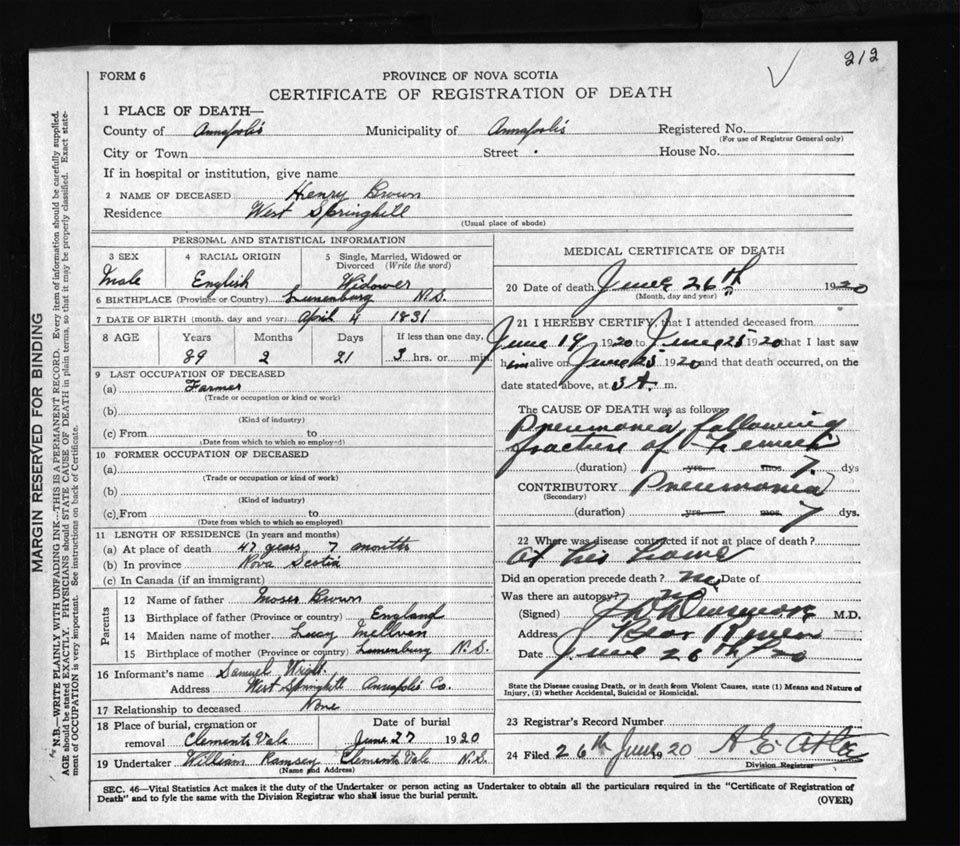 212
FORM 6
PROVINCE OF NOVA SCOTIA
CERTIFICATE OF REGISTRATION OF DEATH
1 PLACE OF DEATH—
County of Annapolis Municipality of Annapolis Registered No.
(For use of Registrar General only)
City or Town Street House No.
If in hospital or institution, give name
2 NAME OF DECEASED Henry Brown
Residence West Springhill
(Usual place of abode)
PERSONAL AND STATISTICAL INFORMATION
3 SEX 4 RACIAL ORIGIN 5 Single, Married, Widowed or
Divorced (Write the word)
Male English Widower
6 BIRTHPLACE (Province or Country) Lunenburg N.S.
7 DATE OF BIRTH (month, day and year) April 4 1831
8 AGE Years Months Days If less than one day,
89 2 21 3 hrs. or min.
9 LAST OCCUPATION OF DECEASED
(a) Farmer
(Trade or occupation or kind or work)
(b)
(Kind of industry)
(c) From to
(Date from which to which so employed)
10 FORMER OCCUPATION OF DECEASED
(a)
(Trade or occupation or kind of work)
(b)
(Kind of industry)
(c) From to
(Date from which to which so employed)
11 LENGTH OF RESIDENCE (In years and months)
(a) At place of death 47 years 7 months
(b) In province Nova Scotia
(c) In Canada (if an immigrant)
Parents
12 Name of father Moses Brown
13 Birthplace of father (Province or country) England
14 Maiden name of mother Lucy
15 Birthplace of mother (Province or country) Lunenburg N.S.
16 Informant's name Samuel Wright
Address West Springhill Annapolis Co.
17 Relationship to deceased None
18 Place of burial, cremation or Date of burial
removal Clements Vale June 27 1920
19 Undertaker William Ramsey Clements Vale N.S.
(Name and Address)
MEDICAL CERTIFICATE OF DEATH
20 Date of death June 26th 1920
(Month, day and year)
21 I HEREBY CERTIFY, that I attended deceased from
June 19 1920 to June 25 1920 that I last saw
him alive on June 25 1920 and that death occurred, on the
date stated above, at 3 A. m.
The CAUSE OF DEATH was as follows
Pneumonia following
fracture of Femur
(duration) yrs. mos. 7 dys
CONTRIBUTORY Pneumonia
(Secondary)
(duration) yrs. mos. 7 dys.
22 Where was disease contracted if not at place of death?
At his home
Did an operation precede death? no Date of
Was there an autopsy? no
(Signed) M.D.
Address Bear River
Date June 26th/20
State the Disease causing Death, or in death from Violent Causes, state (1) Means and Nature of
Injury, (2) whether Accidental, Suicidal or Homicidal.
23 Registrar's Record Number
24 Filed 26th June 1920
Division Registrar
SEC. 46—Vital Statistics Act makes it the duty of the Undertaker or person acting as Undertaker to obtain all the particulars required in the "Certificate of Registration of
Death" and to fyle the same with the Division Registrar who shall issue the burial permit.
(OVER)
MARGIN RESERVED FOR BINDING
N.B.—WRITE PLAINLY WITH UNFADING INK—THIS IS A PERMANENT RECORD. Every item of information should be carefully supplied.
AGE should be stated EXACTLY. PHYSICIANS should STATE CAUSE OF DEATH in plain terms, so that it may be properly classified. Exact state-
ment of OCCUPATION is very important. See instructions on back of Certificate.